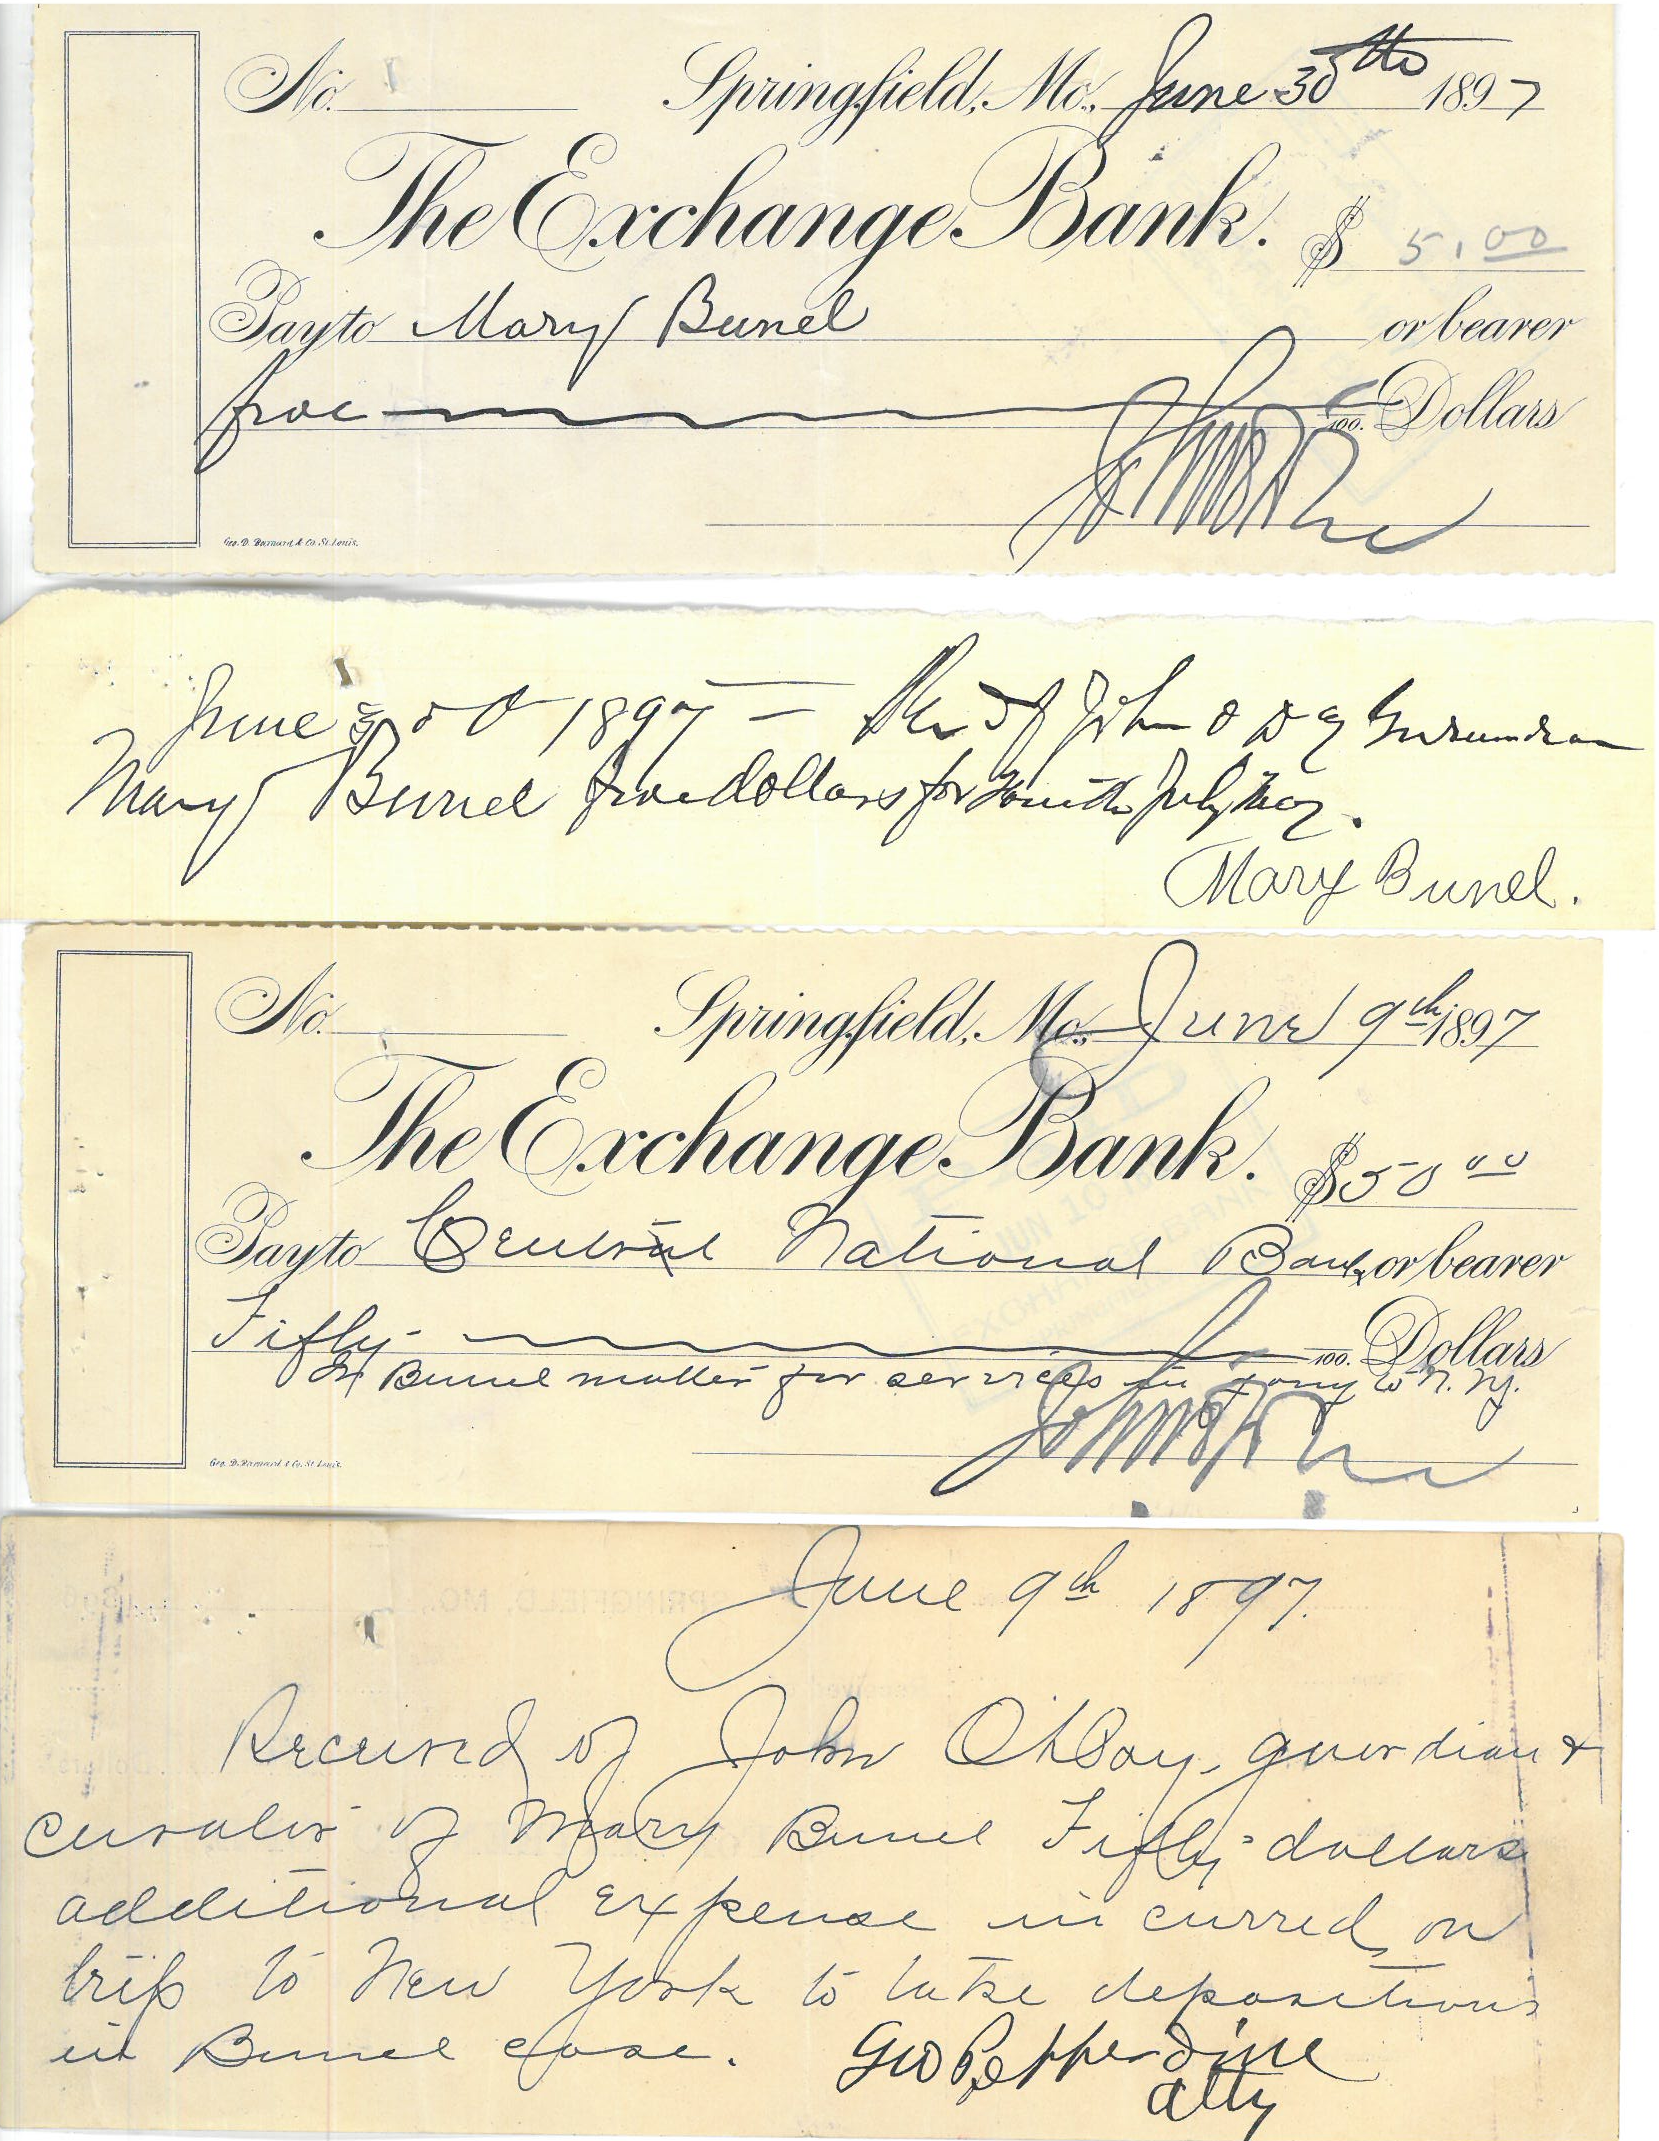 No. Springfield, Mo., June 30th 1897
The Exchange Bank. $ 5.00
Pay to Mary Bunel or bearer
five 100. Dollars
Geo. D. Barnard & Co. St. Louis.
June 30 1897 — Recd of John O Day
Mary Bunel five dollars for Fourth July
Mary Bunel.
No. Springfield, Mo., June 9th 1897
The Exchange Bank. $50 00
Pay to Central National Bank, or bearer
Fifty - 100. Dollars
In Bunel matter for services in going to N. Y.
Geo. D. Barnard & Co. St. Louis.
JUN 10
June 9th 1897.
Received of John O'Day, guardian &
curator of Mary Bunel Fifty - dollars
additional expense incurred on
trip to New York to take depositions
in Bunel case. Geo Pepperdine
atty